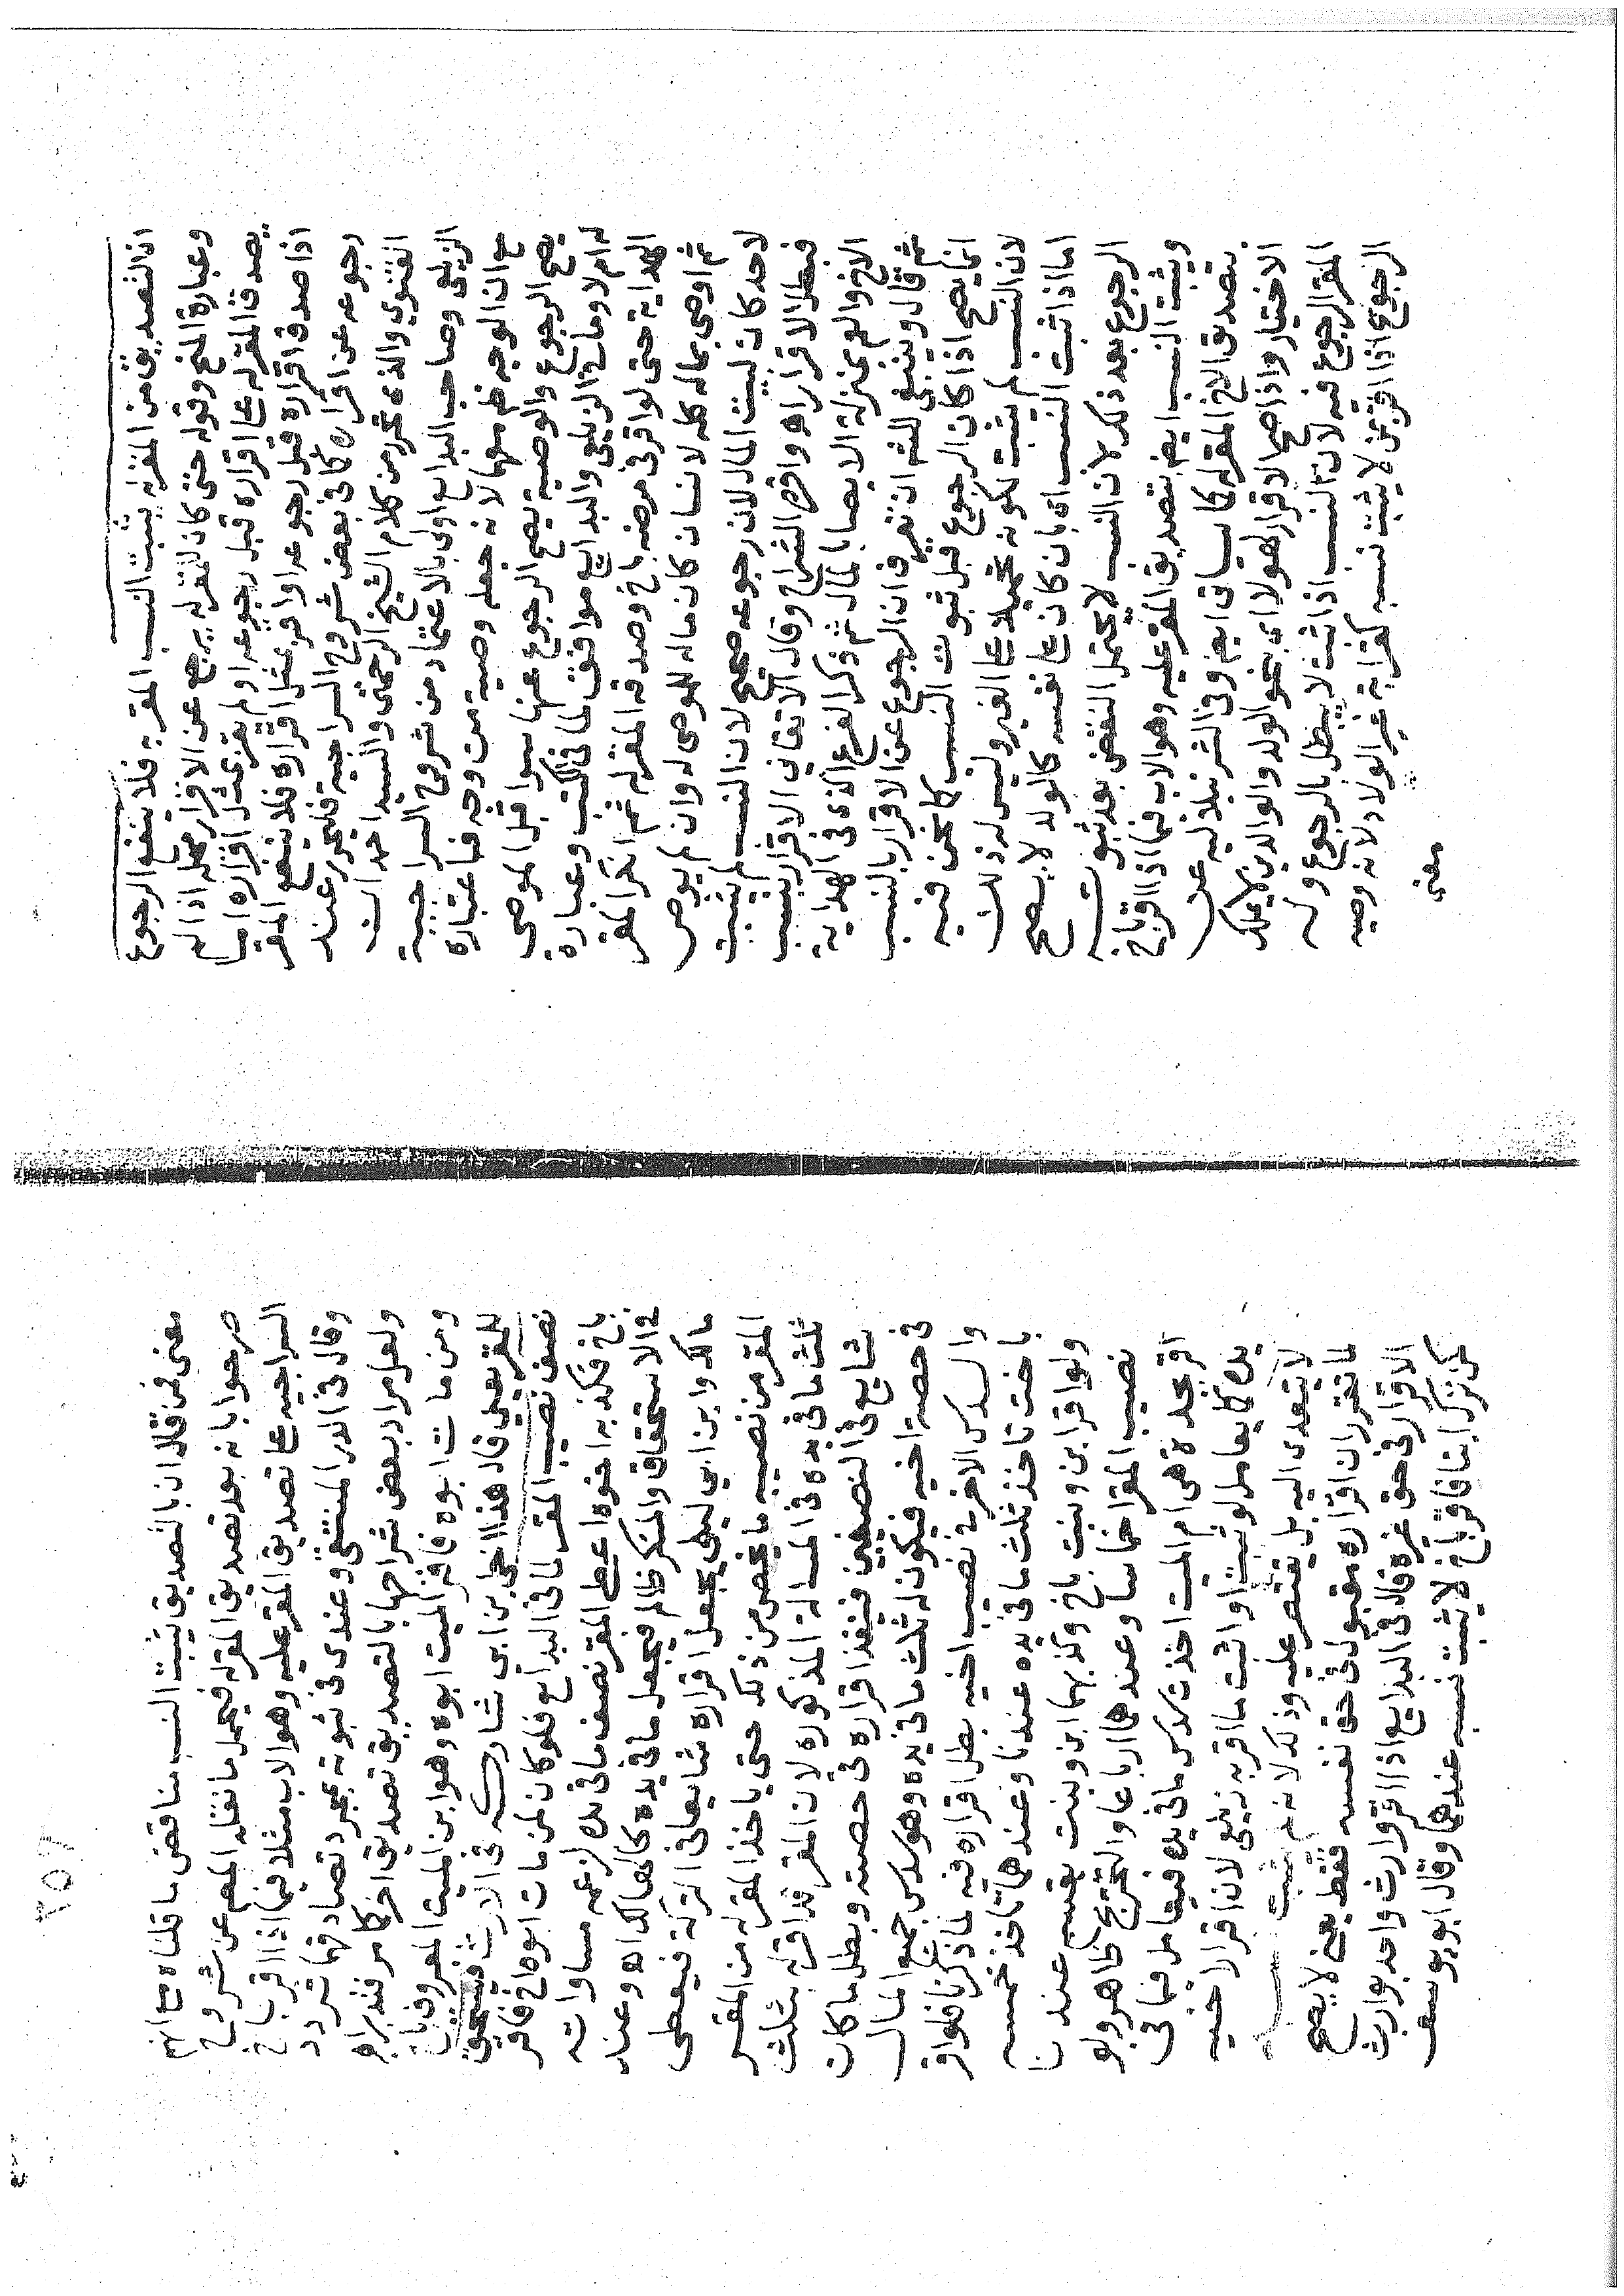 ان التصديق من المقر له يثبت النسب المقر به فلا ينفع الرجوع
وعبارة المنح وقوله حتى كان للمقر له يرجع عن الاقرار محله اذا لم
يصدق المقر له على اقراره قبل رجوعه او لم يقر بمثل اقراره اما
اذا صدق اقراره قبل رجوعه او اقر بمثل اقراره فلا ينفع المقر
رجوعه عن اقراره كما في بعض شروح السراجية فليحرر عند
الفتوي والذي تحرر من كلام الشيخ الرحمتي والسيد احمد ان
الزيلعي وصاحب البدايع اولى بالاعتماد من شروح السراجية
مع ان الوجه ظ معهما لانه جعله وصية من وجه فباعتباره
يصح الرجوع والوصية يصح الرجوع عنها سوا قبل الموصى
له ام لا وما في الزيلعي والبدايع موافق لما في الكتب وعبارة
الهداية حتى لو اقر في مرضه باخ وصدقه المقر له ثم انكر المقر
ثم اوصى بماله كله لانسان كان ماله للموصى له وان لم يوص
لاحد كان لبيت المال لان رجوعه صحيح لان النسب لم يثبت
فبطل الاقرار اه واقره الشراح وقال الاتقاني الاقرار بنسب
الاخ والعم بمنزلة الايصا بالمال ثم ذكر الفرع الذي في الهداية
ثم قال وينبغي لك ان تعرف ان الرجوع عن الاقرار بالنسب
انما يصح اذا كان الرجوع قبل ثبوت النسب كما نحن فيه
لان النسب لم يثبت لكونه تحميلا على الغير وليس له ذلك
اما اذا ثبت النسب اه بان كان على نفسه كالولد لا يصح
الرجوع بعد ذكر لان النسب لا يحتمل النقض بعد ثبوته
ويثبت النسب ايضا بتصديق المقر عليه وهو الاب فيما اذا اقر باخ
بتصديق الاخ المقر له كما سياتي ايضا وفي الشرنبلاليه عن
الاختيار واذا صح الاقرار لهولا اي بنحو الولد والوالدين لا يملك
المقر الرجوع فيه لان النسب اذا ثبت لا يبطل بالرجوع وله
الرجوع اذا اقر بمن لا يثبت نسبه كقرابة غير الولاد لانه وصيه
معنى
معنى فمن قال ان بالتصديق يثبت النسب مناقض ما قلناه مع انهم
صرحوا بانه بعد تصديق المقر له فيحمل ما نقله المص عن شروح
السراجية على تصديق المقر عليه وهو الاب مثلا فيما اذا اقر باخ
وقال في الدر المنتقى وعندي في ثبوته بمجرد تصادقهما تردد
ولعل مراد بعض شراحها بالتصديق تصديق اخر كما مر فتدبراه
ومن مات ابوه فاقر الميت ابوه وهو ابن الميت المعروف باخ
للمقر يعني قال هذا اخي ابن ابي شاركه في الارث فيستحق
نصف نصيب المقر لما في البدايع فلو كان لمن مات ابوه اخ فاقر
باخ فكذبه اخوه اعطى المقر نصف ما في يده لزعمه مساواته
في الاستحقاق والمنكر ظالم فيجعل ما في يده كالهالك اه وعند
مالك وابن ابي ليلى يجعل اقراره شايعا في التركة فيعطى
المقر من نصيبه ما يخص من ذلك حتى ياخذ المقر له من المقر
ثلث ما في يده في المسالة المذكورة لان المقر قد اقر له بثلث
شايع في النصفين فينفذ اقراره في حصته وبطل ما كان
في حصة اخيه فيكون له ثلث ما في يده وهو سدس جميع المال
والسدس الاخر في نصيب اخيه بطل اقراره فيه لما ذكرنا فلو اقر
باخت تاخذ ثلث ما في يده عندنا وعندهما تاخذ خمسه
ولو اقر ابن وبنت باخ وكذبهما ابن وبنت يقسم عندنا
نصيب المقر اخماسا وعندهما ارباعا والتخريج ظاهر ولو
اقر بجدة هي ام الميت اخذت سدس ما في يده فيعامل فيما في
يده كما يعامل لو ثبت او اثبت ما اقر به زيلعي لان اقرار اخيه
لا يتعدى اليه بل يقتصر عليه وذلك لانه لم يثبت نسبه
لما تقرر ان اقراره مقبول في حق نفسه فقط يعني لا يصح
الاقرار في حق غيره قال في البدايع اذا اقر وارث واحد بوارث
كمن ترك ابنا فاقر باخ لا يثبت نسبه عندهما وقال ابو يوسف
٢٥٢